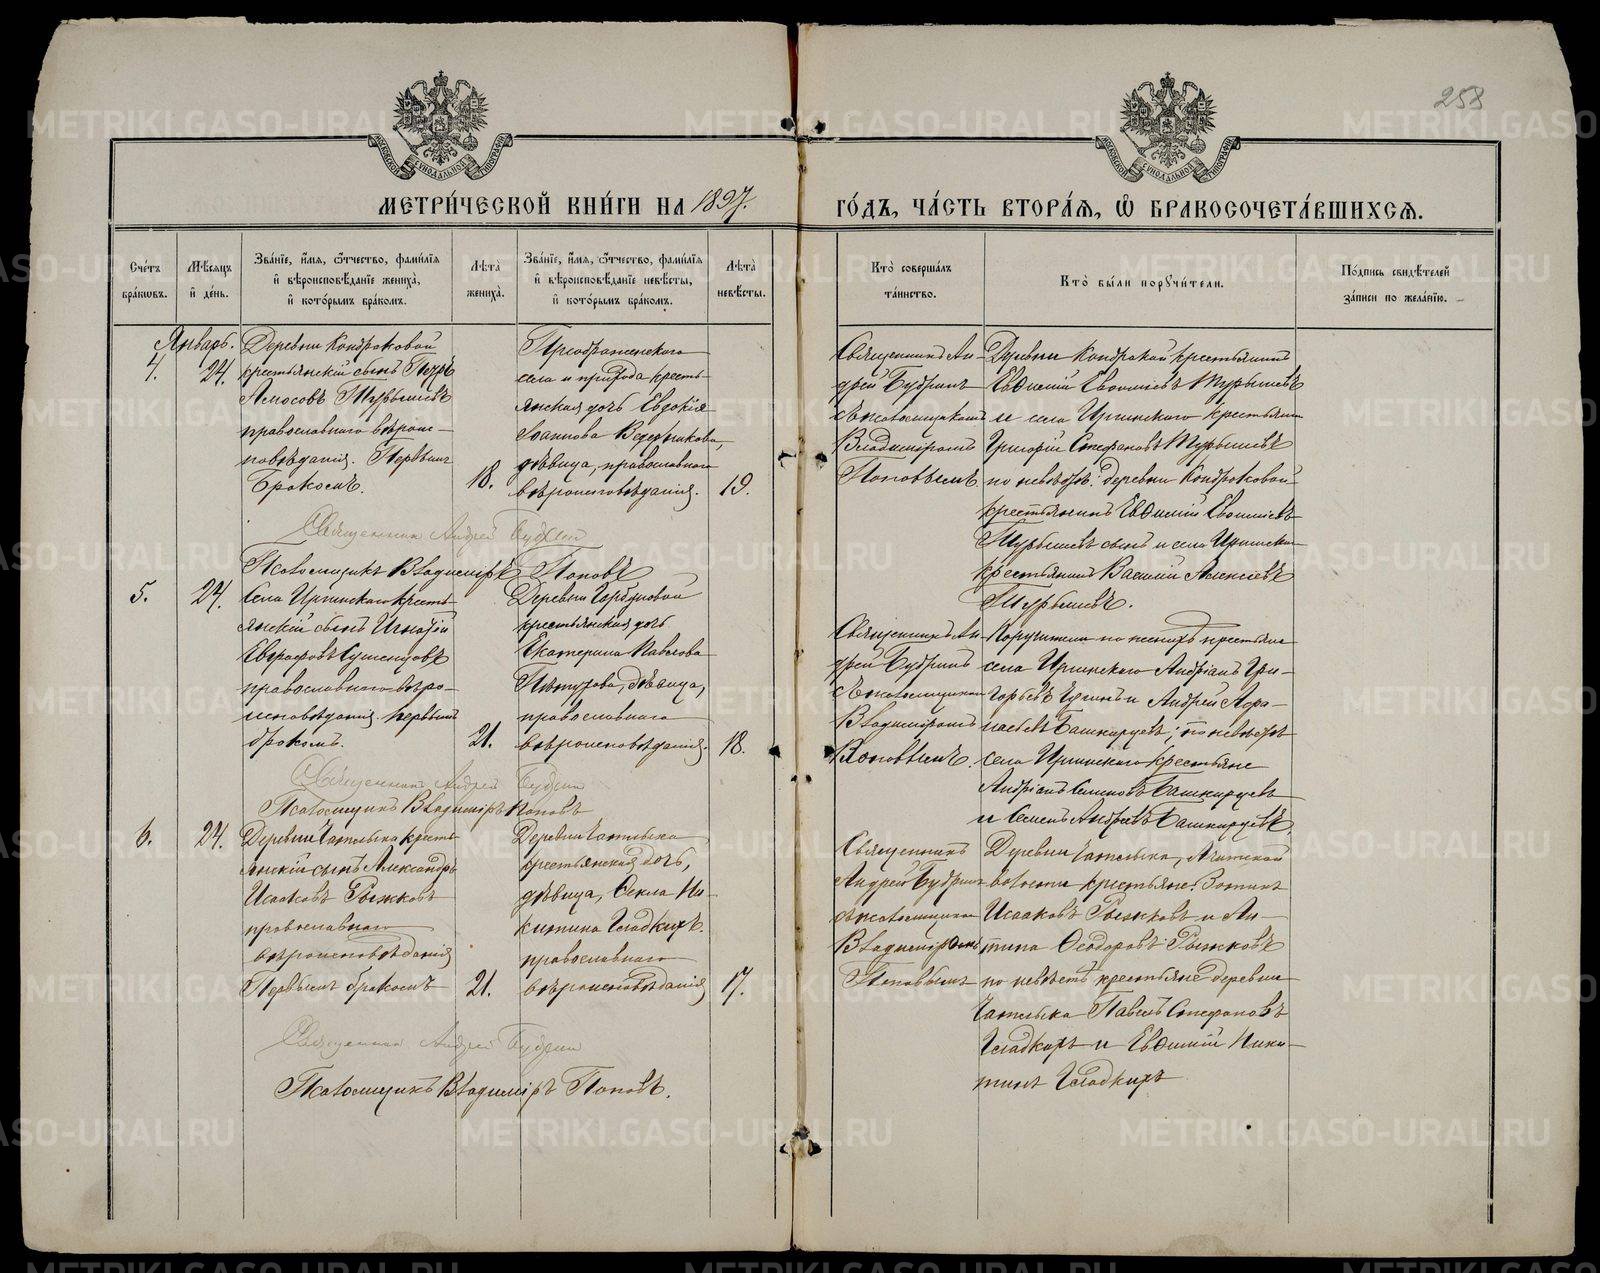 258
МЕТРИ́ЧЕСКОЙ КНИ́ГИ НА 1897.
ГО́ДЪ, ЧА́СТЬ ВТОРА́Я, Ѡ҆ БРАКОСОЧЕТА́ВШИХСЯ.
Сче́тъ бра́кѡвъ.
Мѣ́сяцъ и҆ де́нь.
Зва́нїе, и҆́мя, ѻ҆́тчество, фами́лїя
и҆ вѣроисповѣ́данїе жениха̀,
и҆ кото́рымъ бра́комъ.
Лѣ́та жениха̀.
Зва́нїе, и҆́мя, ѻ҆́тчество, фами́лїя
и҆ вѣроисповѣ́данїе невѣ́сты,
и҆ кото́рымъ бра́комъ.
Лѣ́та невѣ́сты.
Кто̀ соверша́лъ та́инство.
Кто̀ бы́ли порꙋчи́тели.
По́дпись свидѣ́телей за́писи по жела́нїю.
Январь.
4.
24.
Деревни Кондраковой
крестьянскій сынъ Петръ
Амосовъ Турышевъ
православнаго вѣроис-
повѣданія. Первымъ
бракомъ.
18.
Преображенскаго
села и прихода кресть-
янская дочь Евдокія
Іоаннова Ведерникова,
дѣвица, православнаго
вѣроисповѣданія.
19.
Священникъ Ан-
дрей Будринъ
съ псаломщикомъ
Владиміромъ
Поповымъ
Деревни Кондраковой крестьянинъ
Евѳимій Турышевъ
и села Иргинскаго крестьянинъ
Григорій Стефановъ Турышевъ
по невѣстѣ: деревни Кондраковой
крестьянинъ Евѳимій
Турышевъ сынъ и села Иргинскаго
крестьянинъ Василій Алексѣевъ
Турышевъ.
Священникъ Андрей Будринъ
Псаломщикъ Владиміръ Поповъ
5.
24.
Села Иргинскаго кресть-
янскій сынъ Игнатій
Евграфовъ Сушенцовъ
православнаго вѣро-
исповѣданія, первымъ
бракомъ.
21.
Деревни Горбуновой
крестьянская дочь
Екатерина Павлова
Пѣтухова, дѣвица,
православнаго
вѣроисповѣданія.
18.
Священникъ Ан-
дрей Будринъ
съ псаломщикомъ
Владиміромъ
Поповымъ.
Поручители по женихѣ крестьяне
села Иргинскаго Андріанъ Гри-
горьевъ и Андрей Аѳа-
насьевъ Башкирцевъ; по невѣстѣ
села Иргинскаго крестьяне
Андріанъ Семеновъ Башкирцевъ
и Семенъ Андреевъ Башкирцевъ.
Священникъ Андрей Будринъ
Псаломщикъ Владиміръ Поповъ
6.
24.
Деревни Чатлыка кресть-
янскій сынъ Александръ
Исааковъ Рыжковъ
православнаго
вѣроисповѣданія
Первымъ бракомъ
21.
Деревни Чатлыка
крестьянская дочь,
дѣвица, Ѳекла Ни-
китина Гладкихъ.
православнаго
вѣроисповѣданія
17.
Священникъ
Андрей Будринъ
съ псаломщикомъ
Владиміромъ
Поповымъ
Деревни Чатлыка, Ачитской
волости крестьяне:
Исааковъ Рыжковъ и Ан-
типа Ѳеодоровъ Рыжковъ
по невѣстѣ крестьяне деревни
Чатлыка Павелъ Стефановъ
Гладкихъ и Евѳимій Ники-
тинъ Гладкихъ
Священникъ Андрей Будринъ
Псаломщикъ Владиміръ Поповъ.